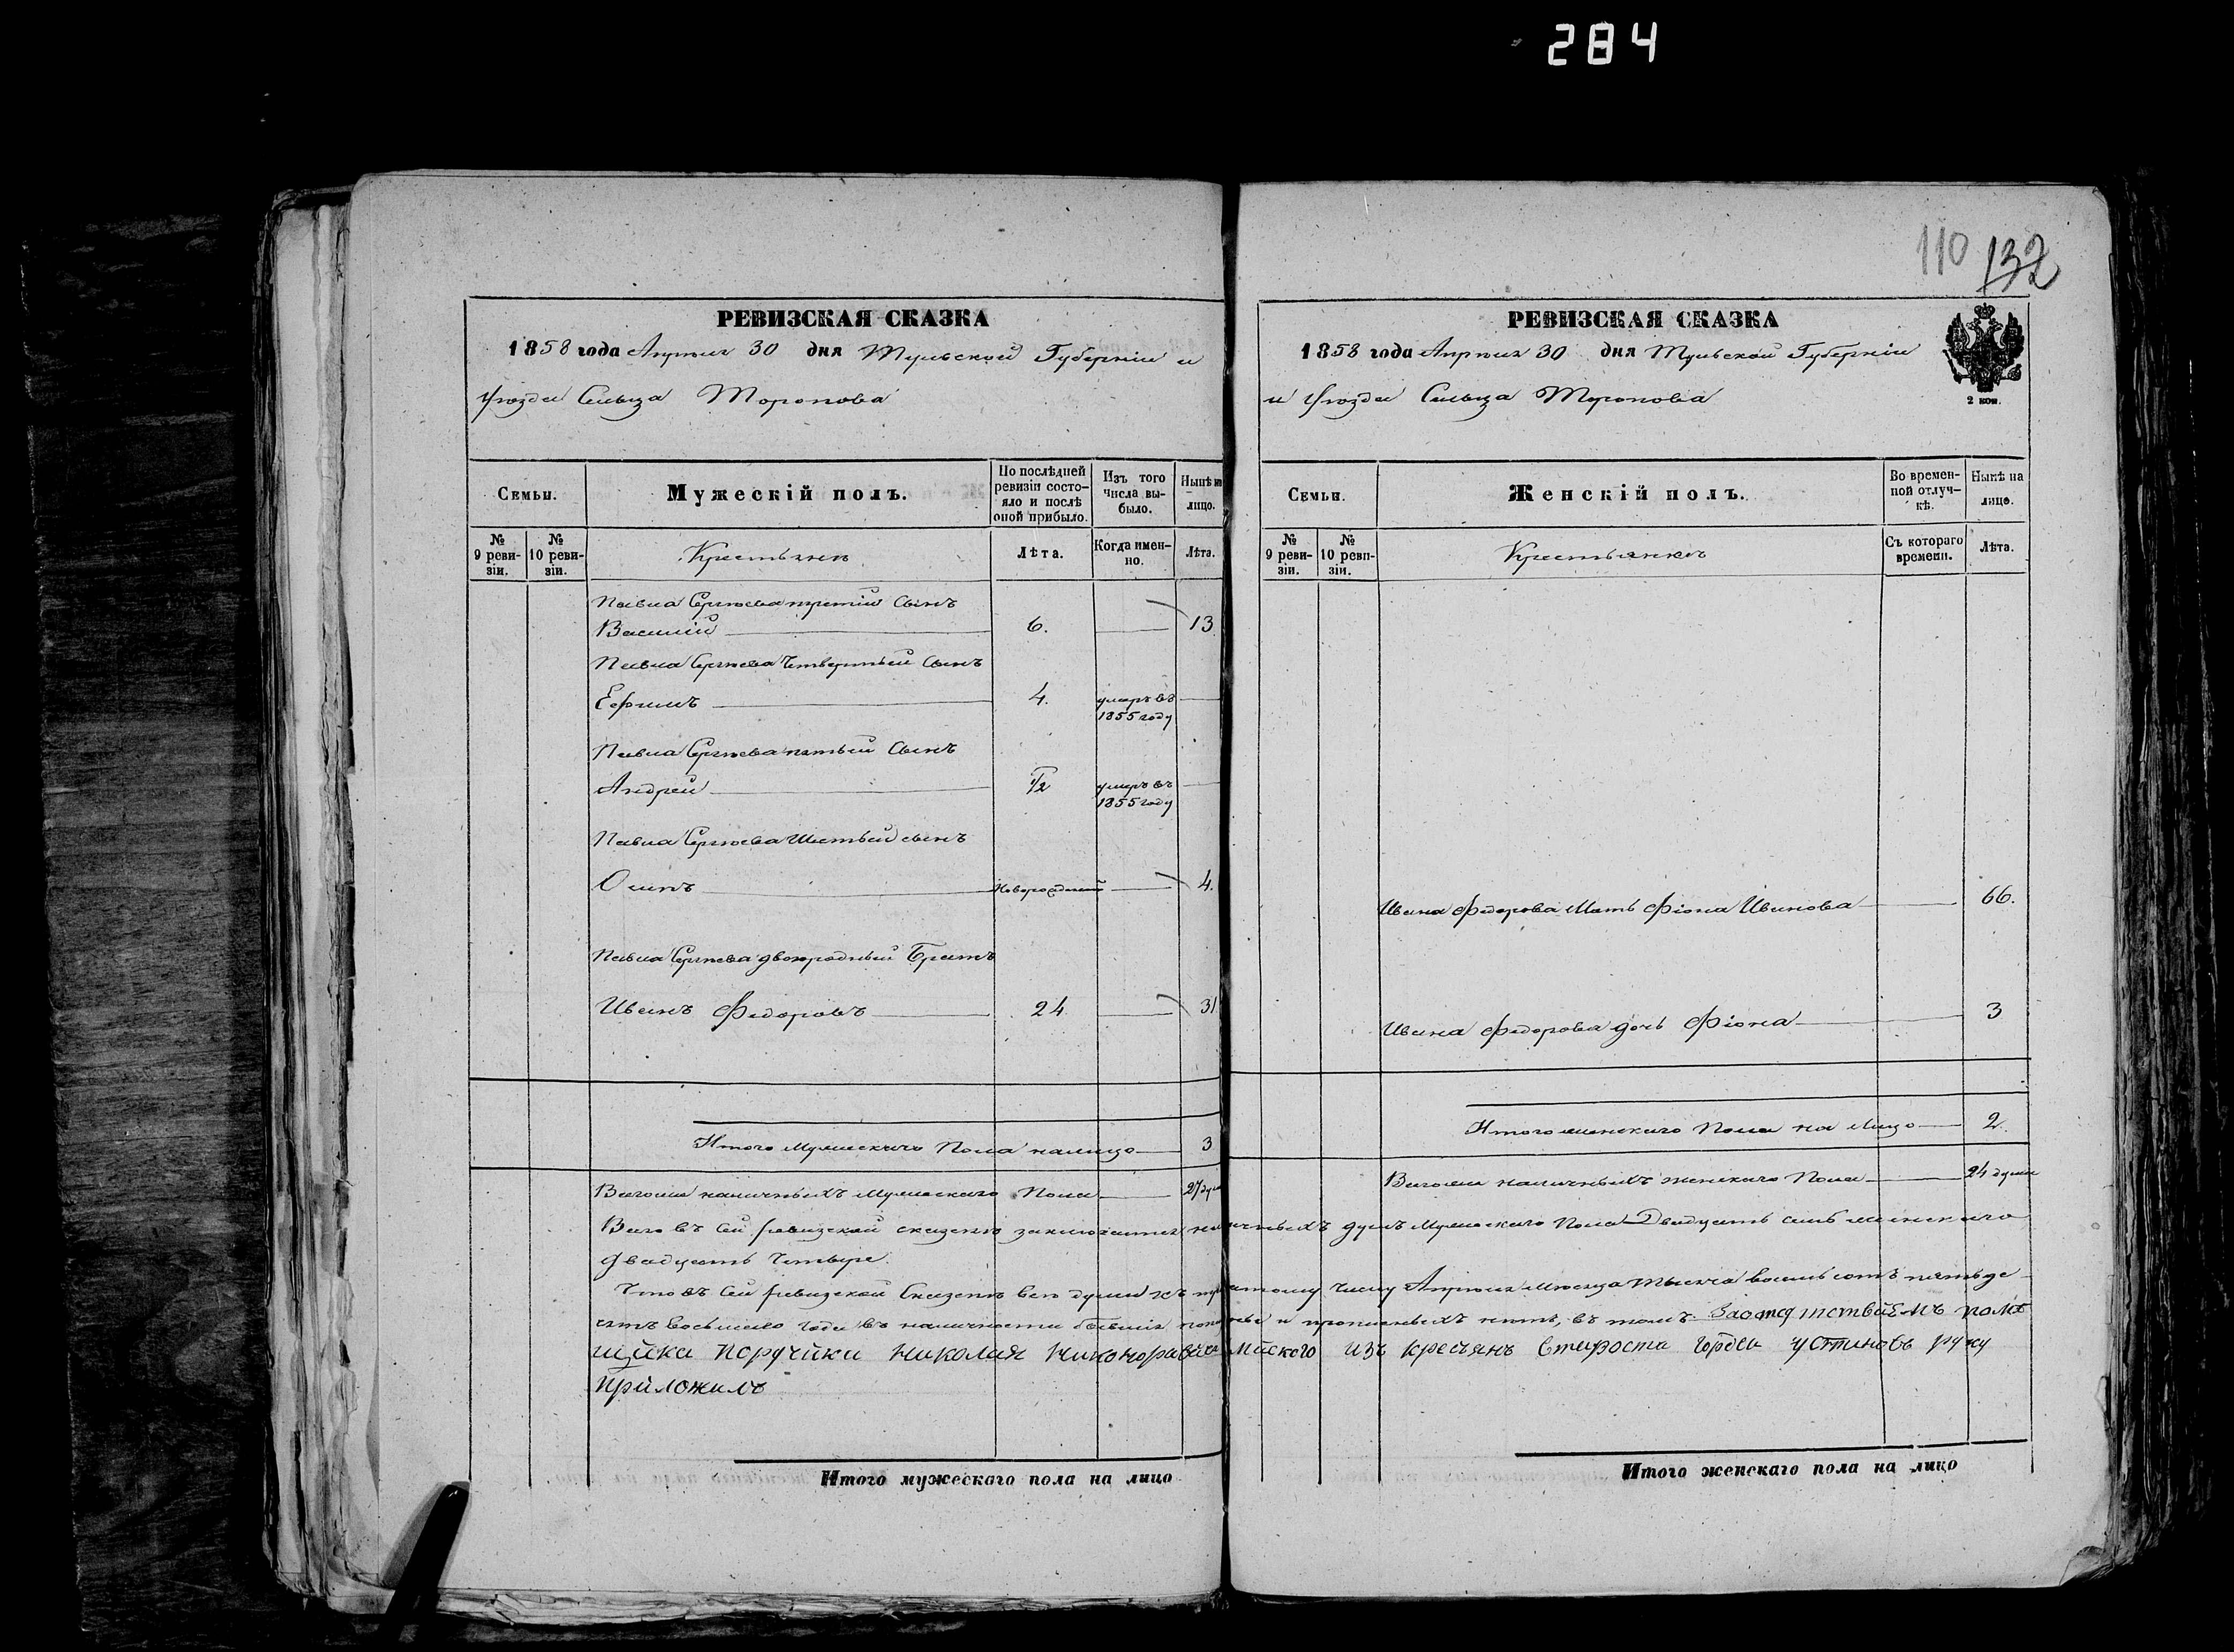 284
110 132
РЕВИЗСКАЯ СКАЗКА
1858 года Апреля 30 дня Тульской Губерніи и
Уезда Сельца Торопова
Семьи.
Мужескій полъ.
По послѣдней ревизіи состо-
яло и послѣ
оной прибыло.
Изъ того
числа вы-
было.
Нынѣ на
лицо.
№
9 реви-
зіи.
№
10 реви-
зіи.
Крестьяне
Лѣта.
Когда имен-
но.
Лѣта.
Павла Сергѣева третій Сынъ
Василій 6. 13
Павла Сергѣева Четвертый Сынъ
Ефимъ 4. умеръ въ
1855 году
Павла Сергѣева пятый Сынъ
Андрей 1/2 умеръ въ
1855 году
Павла Сергѣева Шестый сынъ
Осипъ Новорожденный 4.
Павла Сергѣева двоюродный Братъ
Иванъ Федоровъ 24 31
Итого Мужескаго Пола налицо 3
Всего наличныхъ Мужескаго Пола 27 душ
РЕВИЗСКАЯ СКАЗКА
1858 года Апреля 30 дня Тульской Губерніи
и Уезда Сельца Торопова
2 коп.
Семьи.
Женскій полъ.
Во времен-
ной отлуч-
кѣ.
Нынѣ на
лицо.
№
9 реви-
зіи.
№
10 реви-
зіи.
Крестьянки
Съ котораго
времени.
Лѣта.
Ивана Федорова Мать Фіона Иванова 66.
Ивана Федорова дочь Фіона 3
Итого женскаго Пола на Лицо 2.
Всего наличныхъ женскаго Пола 24 души
Всего въ Сей ревизской сказкѣ заключается наличныхъ душъ Мужескаго Пола Двадцать семь женскаго
двадцать Четыре.
Что въ Сей ревизской Сказкѣ все души къ числу Апреля месяца Тысяча восемьсотъ пятьде-
сятъ восьмаго года въ наличности бывшія и прописныхъ нетъ, въ томъ За отсутствиемъ поме
щика Поручика Николая изъ крестьянъ Староста Гордей Устиновъ руку
приложилъ
Итого мужескаго пола на лицо
Итого женскаго пола на лицо